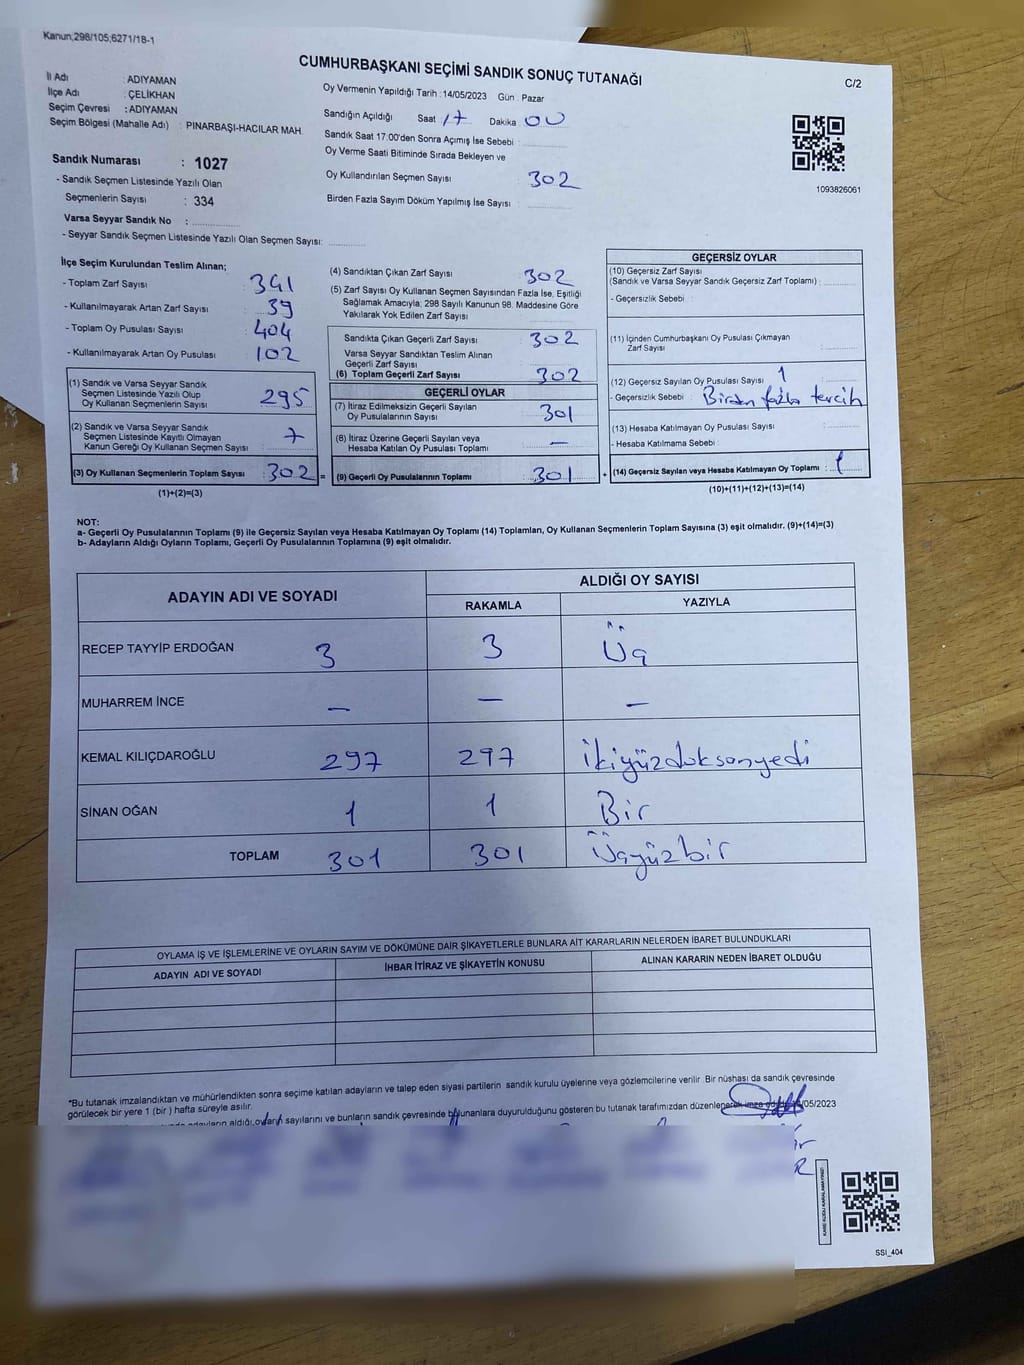 Kanun;298/105;6271/18-1
CUMHURBAŞKANI SEÇİMİ SANDIK SONUÇ TUTANAĞI
C/2
İl Adı : ADIYAMAN
İlçe Adı : ÇELİKHAN
Seçim Çevresi : ADIYAMAN
Seçim Bölgesi (Mahalle Adı) : PINARBAŞI-HACILAR MAH.
Sandık Numarası : 1027
- Sandık Seçmen Listesinde Yazılı Olan
Seçmenlerin Sayısı : 334
Varsa Seyyar Sandık No :
- Seyyar Sandık Seçmen Listesinde Yazılı Olan Seçmen Sayısı:
Oy Vermenin Yapıldığı Tarih : 14/05/2023 Gün : Pazar
Sandığın Açıldığı Saat 17 Dakika 00
Sandık Saat 17:00'den Sonra Açımış İse Sebebi :
Oy Verme Saati Bitiminde Sırada Bekleyen ve
Oy Kullandırılan Seçmen Sayısı 302
Birden Fazla Sayım Döküm Yapılmış İse Sayısı :
1093826061
İlçe Seçim Kurulundan Teslim Alınan;
- Toplam Zarf Sayısı : 341
- Kullanılmayarak Artan Zarf Sayısı : 39
- Toplam Oy Pusulası Sayısı : 404
- Kullanılmayarak Artan Oy Pusulası : 102
(1) Sandık ve Varsa Seyyar Sandık
Seçmen Listesinde Yazılı Olup
Oy Kullanan Seçmenlerin Sayısı : 295
(2) Sandık ve Varsa Seyyar Sandık
Seçmen Listesinde Kayıtlı Olmayan
Kanun Gereği Oy Kullanan Seçmen Sayısı : 7
(3) Oy Kullanan Seçmenlerin Toplam Sayısı : 302 =
(1)+(2)=(3)
(4) Sandıktan Çıkan Zarf Sayısı : 302
(5) Zarf Sayısı Oy Kullanan Seçmen Sayısından Fazla İse, Eşitliği
Sağlamak Amacıyla; 298 Sayılı Kanunun 98. Maddesine Göre
Yakılarak Yok Edilen Zarf Sayısı
Sandıkta Çıkan Geçerli Zarf Sayısı : 302
Varsa Seyyar Sandıktan Teslim Alınan
Geçerli Zarf Sayısı
(6) Toplam Geçerli Zarf Sayısı : 302
GEÇERLİ OYLAR
(7) İtiraz Edilmeksizin Geçerli Sayılan
Oy Pusulalarının Sayısı : 301
(8) İtiraz Üzerine Geçerli Sayılan veya
Hesaba Katılan Oy Pusulası Toplamı : —
(9) Geçerli Oy Pusulalarının Toplamı : 301 +
GEÇERSİZ OYLAR
(10) Geçersiz Zarf Sayısı
(Sandık ve Varsa Seyyar Sandık Geçersiz Zarf Toplamı) :
- Geçersizlik Sebebi :
(11) İçinden Cumhurbaşkanı Oy Pusulası Çıkmayan
Zarf Sayısı
(12) Geçersiz Sayılan Oy Pusulası Sayısı : 1
- Geçersizlik Sebebi : Birden fazla tercih
(13) Hesaba Katılmayan Oy Pusulası Sayısı :
- Hesaba Katılmama Sebebi :
(14) Geçersiz Sayılan veya Hesaba Katılmayan Oy Toplamı : 1
(10)+(11)+(12)+(13)=(14)
NOT:
a- Geçerli Oy Pusulalarının Toplamı (9) ile Geçersiz Sayılan veya Hesaba Katılmayan Oy Toplamı (14) Toplamları, Oy Kullanan Seçmenlerin Toplam Sayısına (3) eşit olmalıdır. (9)+(14)=(3)
b- Adayların Aldığı Oyların Toplamı, Geçerli Oy Pusulalarının Toplamına (9) eşit olmalıdır.
ADAYIN ADI VE SOYADI
ALDIĞI OY SAYISI
RAKAMLA YAZIYLA
RECEP TAYYİP ERDOĞAN 3 3 Üç
MUHARREM İNCE — — —
KEMAL KILIÇDAROĞLU 297 297 ikiyüzdoksanyedi
SİNAN OĞAN 1 1 Bir
TOPLAM 301 301 Üçyüzbir
OYLAMA İŞ VE İŞLEMLERİNE VE OYLARIN SAYIM VE DÖKÜMÜNE DAİR ŞİKAYETLERLE BUNLARA AİT KARARLARIN NELERDEN İBARET BULUNDUKLARI
ADAYIN ADI VE SOYADI İHBAR İTİRAZ VE ŞİKAYETİN KONUSU ALINAN KARARIN NEDEN İBARET OLDUĞU
*Bu tutanak imzalandıktan ve mühürlendikten sonra seçime katılan adayların ve talep eden siyasi partilerin sandık kurulu üyelerine veya gözlemcilerine verilir. Bir nüshası da sandık çevresinde
görülecek bir yere 1 (bir ) hafta süreyle asılır.
aldığı oyların sayılarını ve bunların sandık çevresinde bulunanlara duyurulduğunu gösteren bu tutanak tarafımızdan düzenlenerek imza /05/2023
SSİ_404